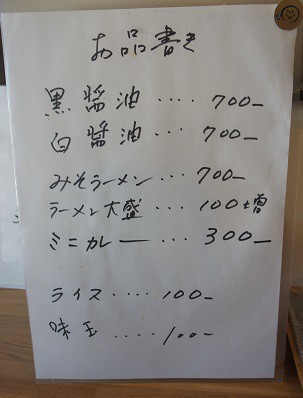 お品書き
黒醤油‥‥700-
白醤油‥‥700-
みそラーメン‥‥700-
ラーメン大盛‥‥100増
ミニカレー‥‥300-
ライス‥‥100-
味玉‥‥100-